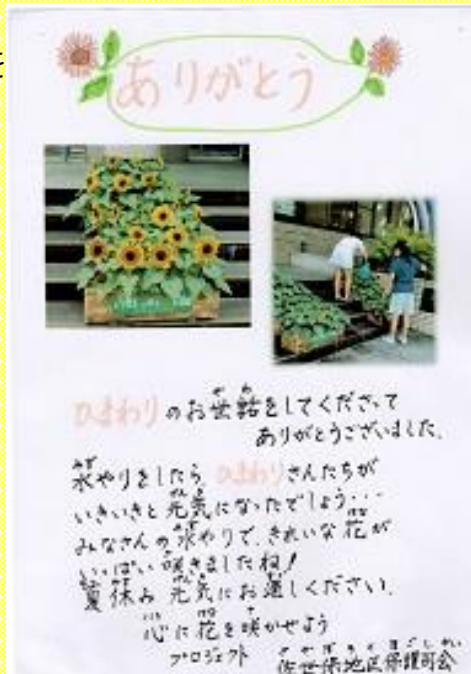 ありがとう
ひまわりのお世話をしてくださって
ありがとうございました。
水やりをしたら ひまわりさんたちが
いきいきと元気になったでしょう・・・
みなさんの水やりで、きれいな花が
いっぱい咲きましたね!
夏休み 元気にお過しください。
心に花を咲かせよう
プロジェクト 佐世保地区保護司会